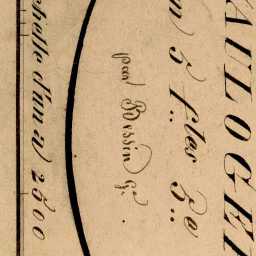 AULOGEI
n 5 f.les 3.e
par Bessin G.
chelle d'un a 2500